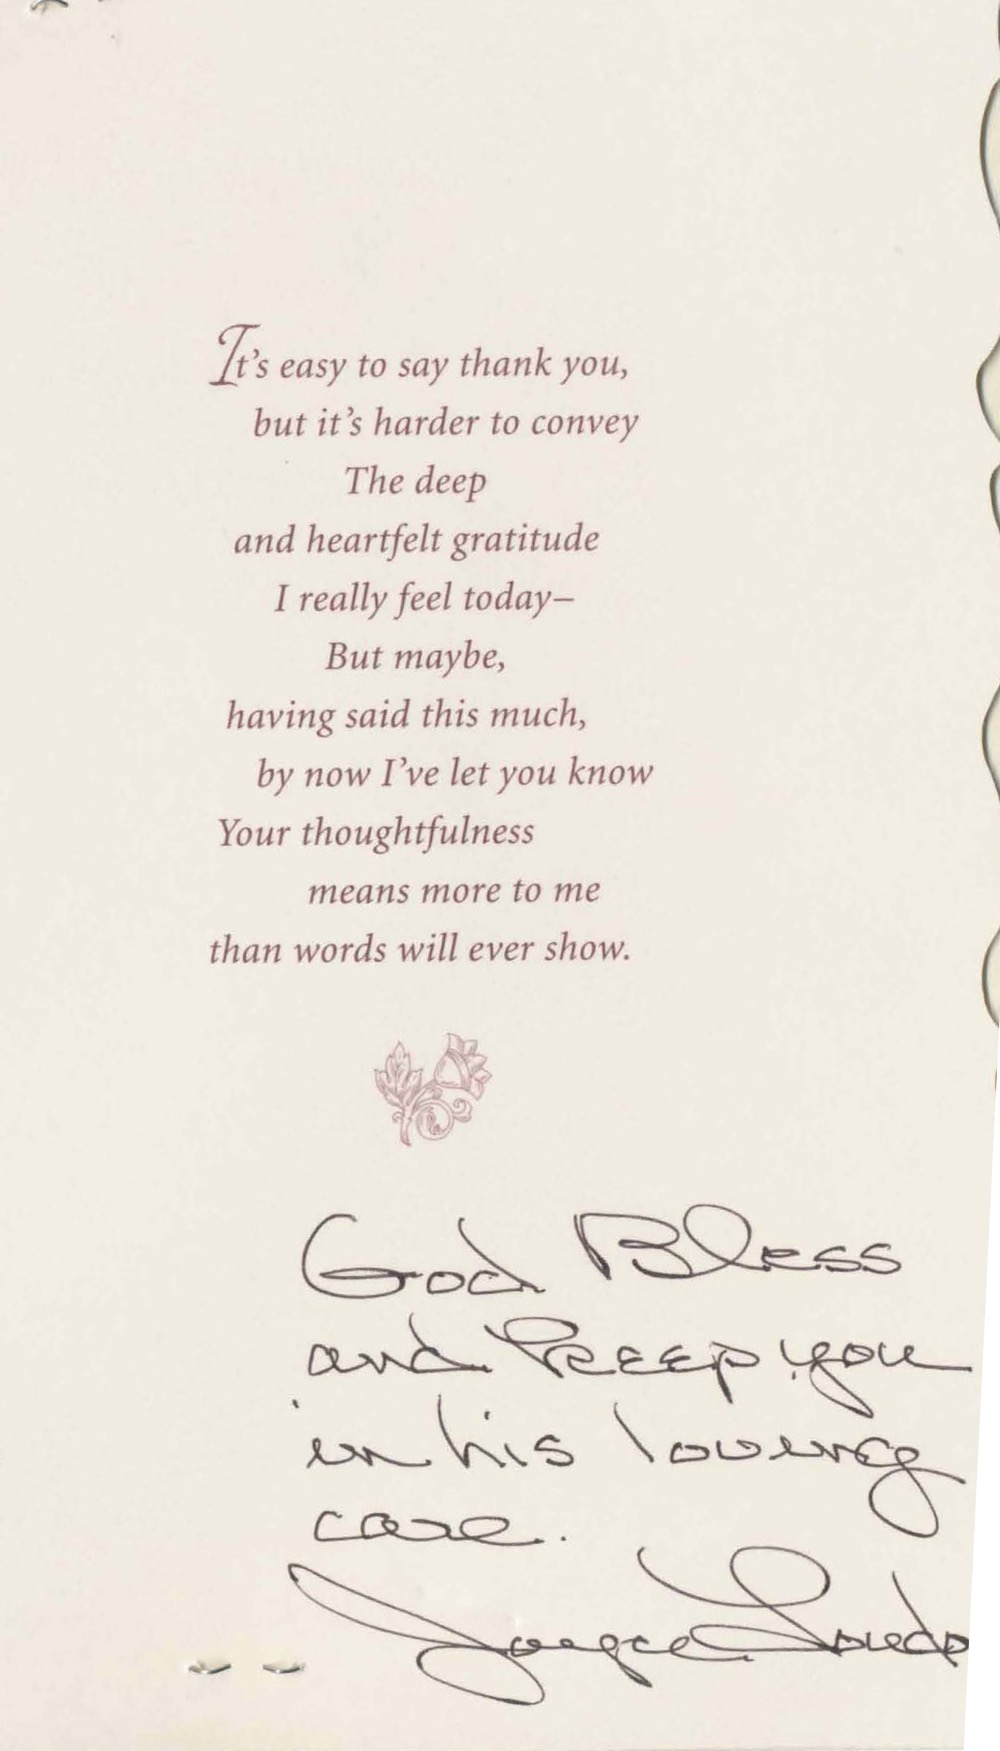 It's easy to say thank you,
but it's harder to convey
The deep
and heartfelt gratitude
I really feel today–
But maybe,
having said this much,
by now I've let you know
Your thoughtfulness
means more to me
than words will ever show.
God Bless
and keep you
in his loving
care.
Joyce